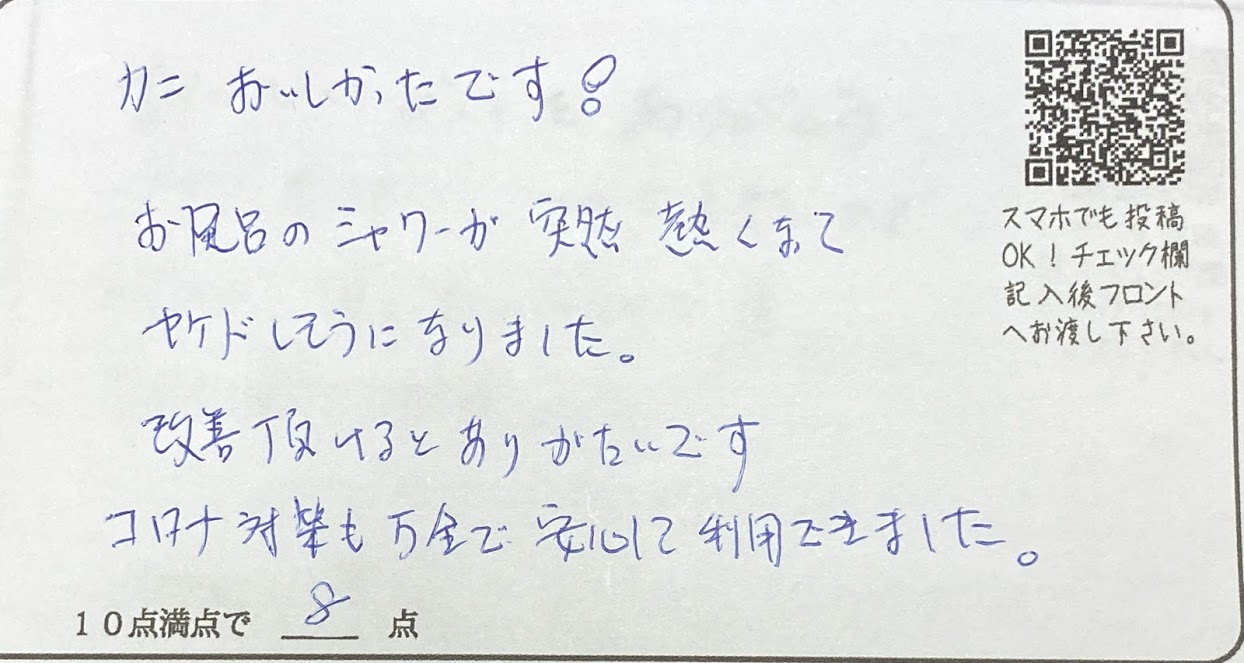 カニ おいしかったです!
お風呂のシャワーが 突然 熱くなって
ヤケドしそうになりました。
改善頂けるとありがたいです
コロナ対策も万全で安心して利用できました。
10点満点で 8 点
スマホでも投稿
OK!チェック欄
記入後フロント
へお渡し下さい。